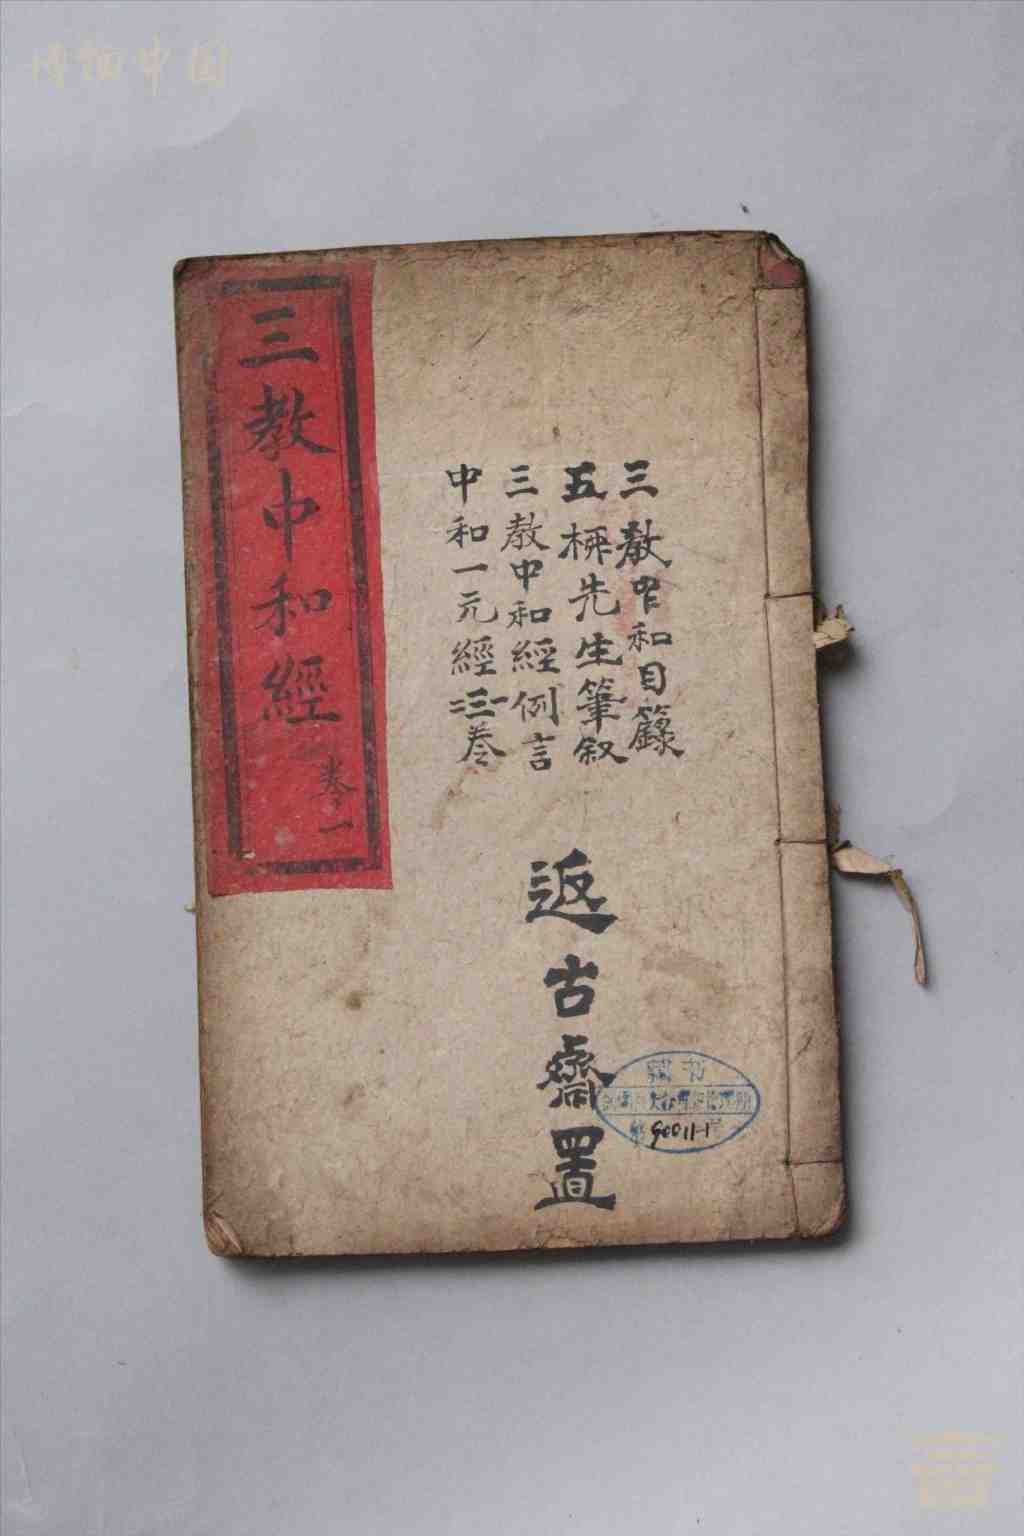 博物中国
三教中和經
卷一
三教中和目籙
五柳先生筆叙
三教中和經例言
中和一元經一二三卷
返古齋置
90011-1